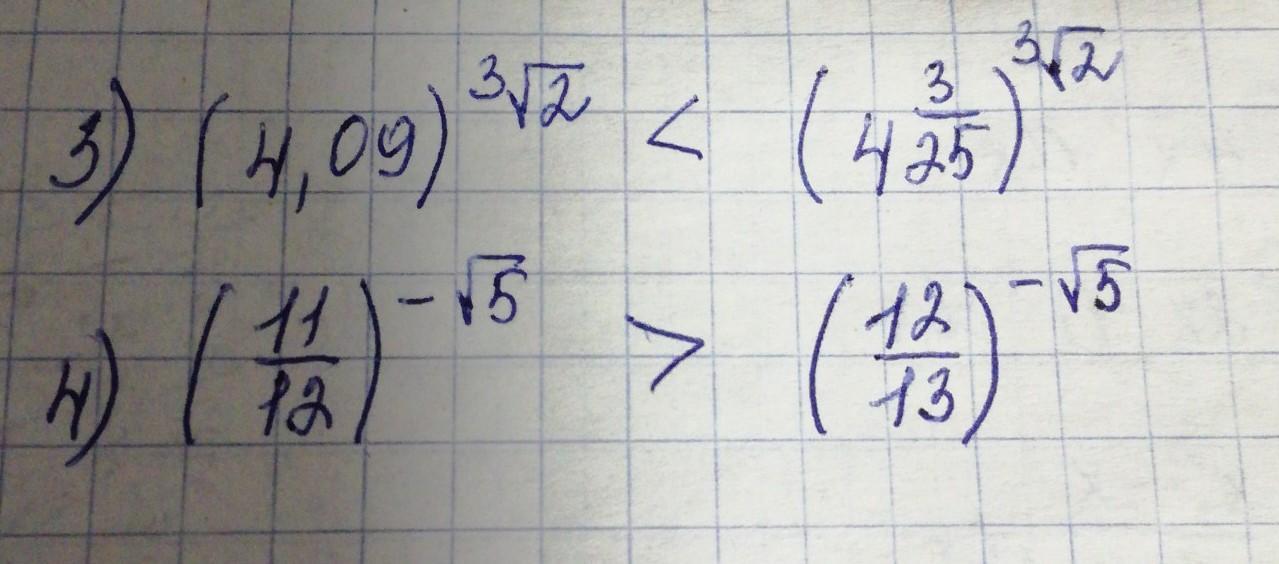 3) (4,09)^∛2 < (4 3/25)^∛2
4) (11/12)^-√5 > (12/13)^-√5